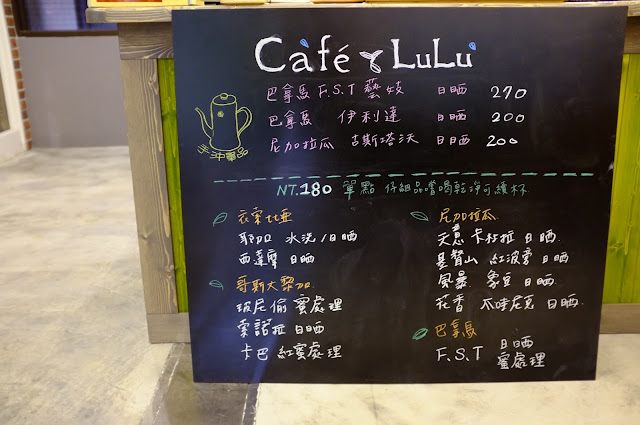 Café LuLu
巴拿馬 F.S.T 藝妓 日晒 270
巴拿馬 伊利達 日晒 200
尼加拉瓜 古斯塔沃 日晒 200
手沖單品
NT.180 單點 仔細品嚐喝乾淨可續杯
衣索比亞
耶加 水洗/日晒
西達摩 日晒
哥斯大黎加
玻尼偷 蜜處理
索諾拉 日晒
卡巴 紅蜜處理
尼加拉瓜
天意 卡杜拉 日晒
基督山 紅波旁 日晒
風景 象豆 日晒
花香 爪哇尼克 日晒
巴拿馬
F.S.T 日晒
蜜處理